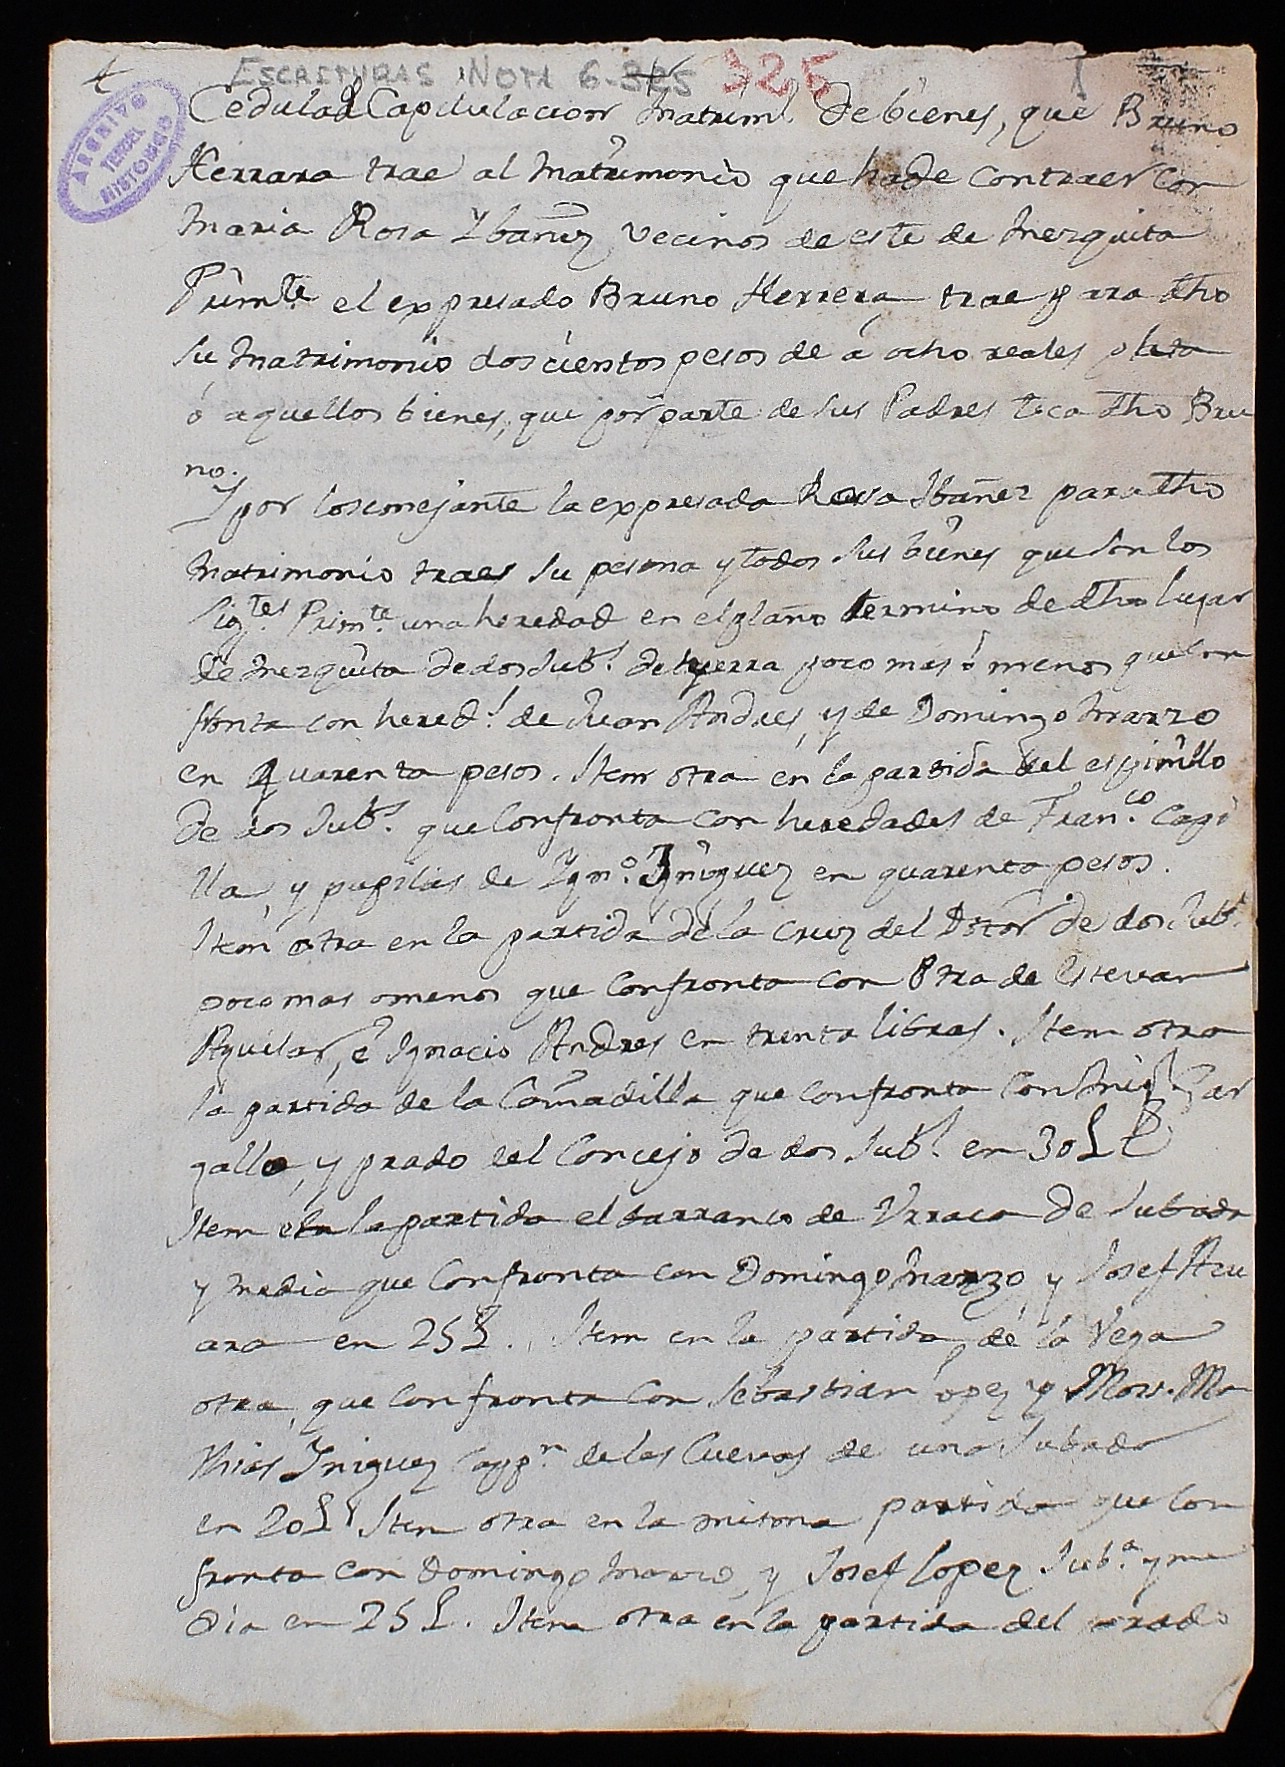 ESCRITURAS NOTA 6-325 325 1
ARCHIVO
HISTORICO
Cedula d Capitulacion Matriml. de bienes, que Bruno
Herrara trae al Matrimonio que hade Contraer con
Maria Rosa Ybañez vecinos de este de Mezquita
Primte el expresado Bruno Herrera, trae para dho
su Matrimonio doscientos pesos de á ocho reales plata
ó aquellos bienes, que por parte de sus Padres toca dho Bru
no.
Y por lo semejante la expresada Rosa Ibañez para dho
Matrimonio traes su persona y todos sus bienes que son los
sigtes. Primte. una heredad en el plano termino de dho lugar
de Mezquita de dos Jubs. de tyerra poco mas ó menos que con
fronta con hereds. de Juan Andres, y de Domingo Marzo
en quarenta pesos. Item otra en la partida del espinillo
de dos Jubs. que Confronta con heredades de Franco. Cagi
lla, y pupilas de Ygno. Yñiguez en quarenta pesos.
Item otra en la partida de la Cruz del Dotor de dos Jubs.
poco mas o menos que Confronta con otra de Estevan
Aguilar, é Ignacio Andres en trenta libras. Item otra
la partida de la Cañadilla que confronta Con Migl. Gar
gallo, y prado del Concejo de dos Jubs. en 30 L
Item en la partida el barranco de Urraca de Jubada
y media que Confronta con Domingo Marzo, y Josef Azu
ara en 25 L. Item en la partida, de la Vega
otra, que Confronta con Sebastian Lopez y Mosn. Ma
thias Yniguez Cappn. de las Cuevas de una Jubada
en 20 L Item otra en la misma partida que Con
fronta con Domingo Marzo, y Josef Lopez Juba. y me
dia en 25 L. Item otra en la partida del prado